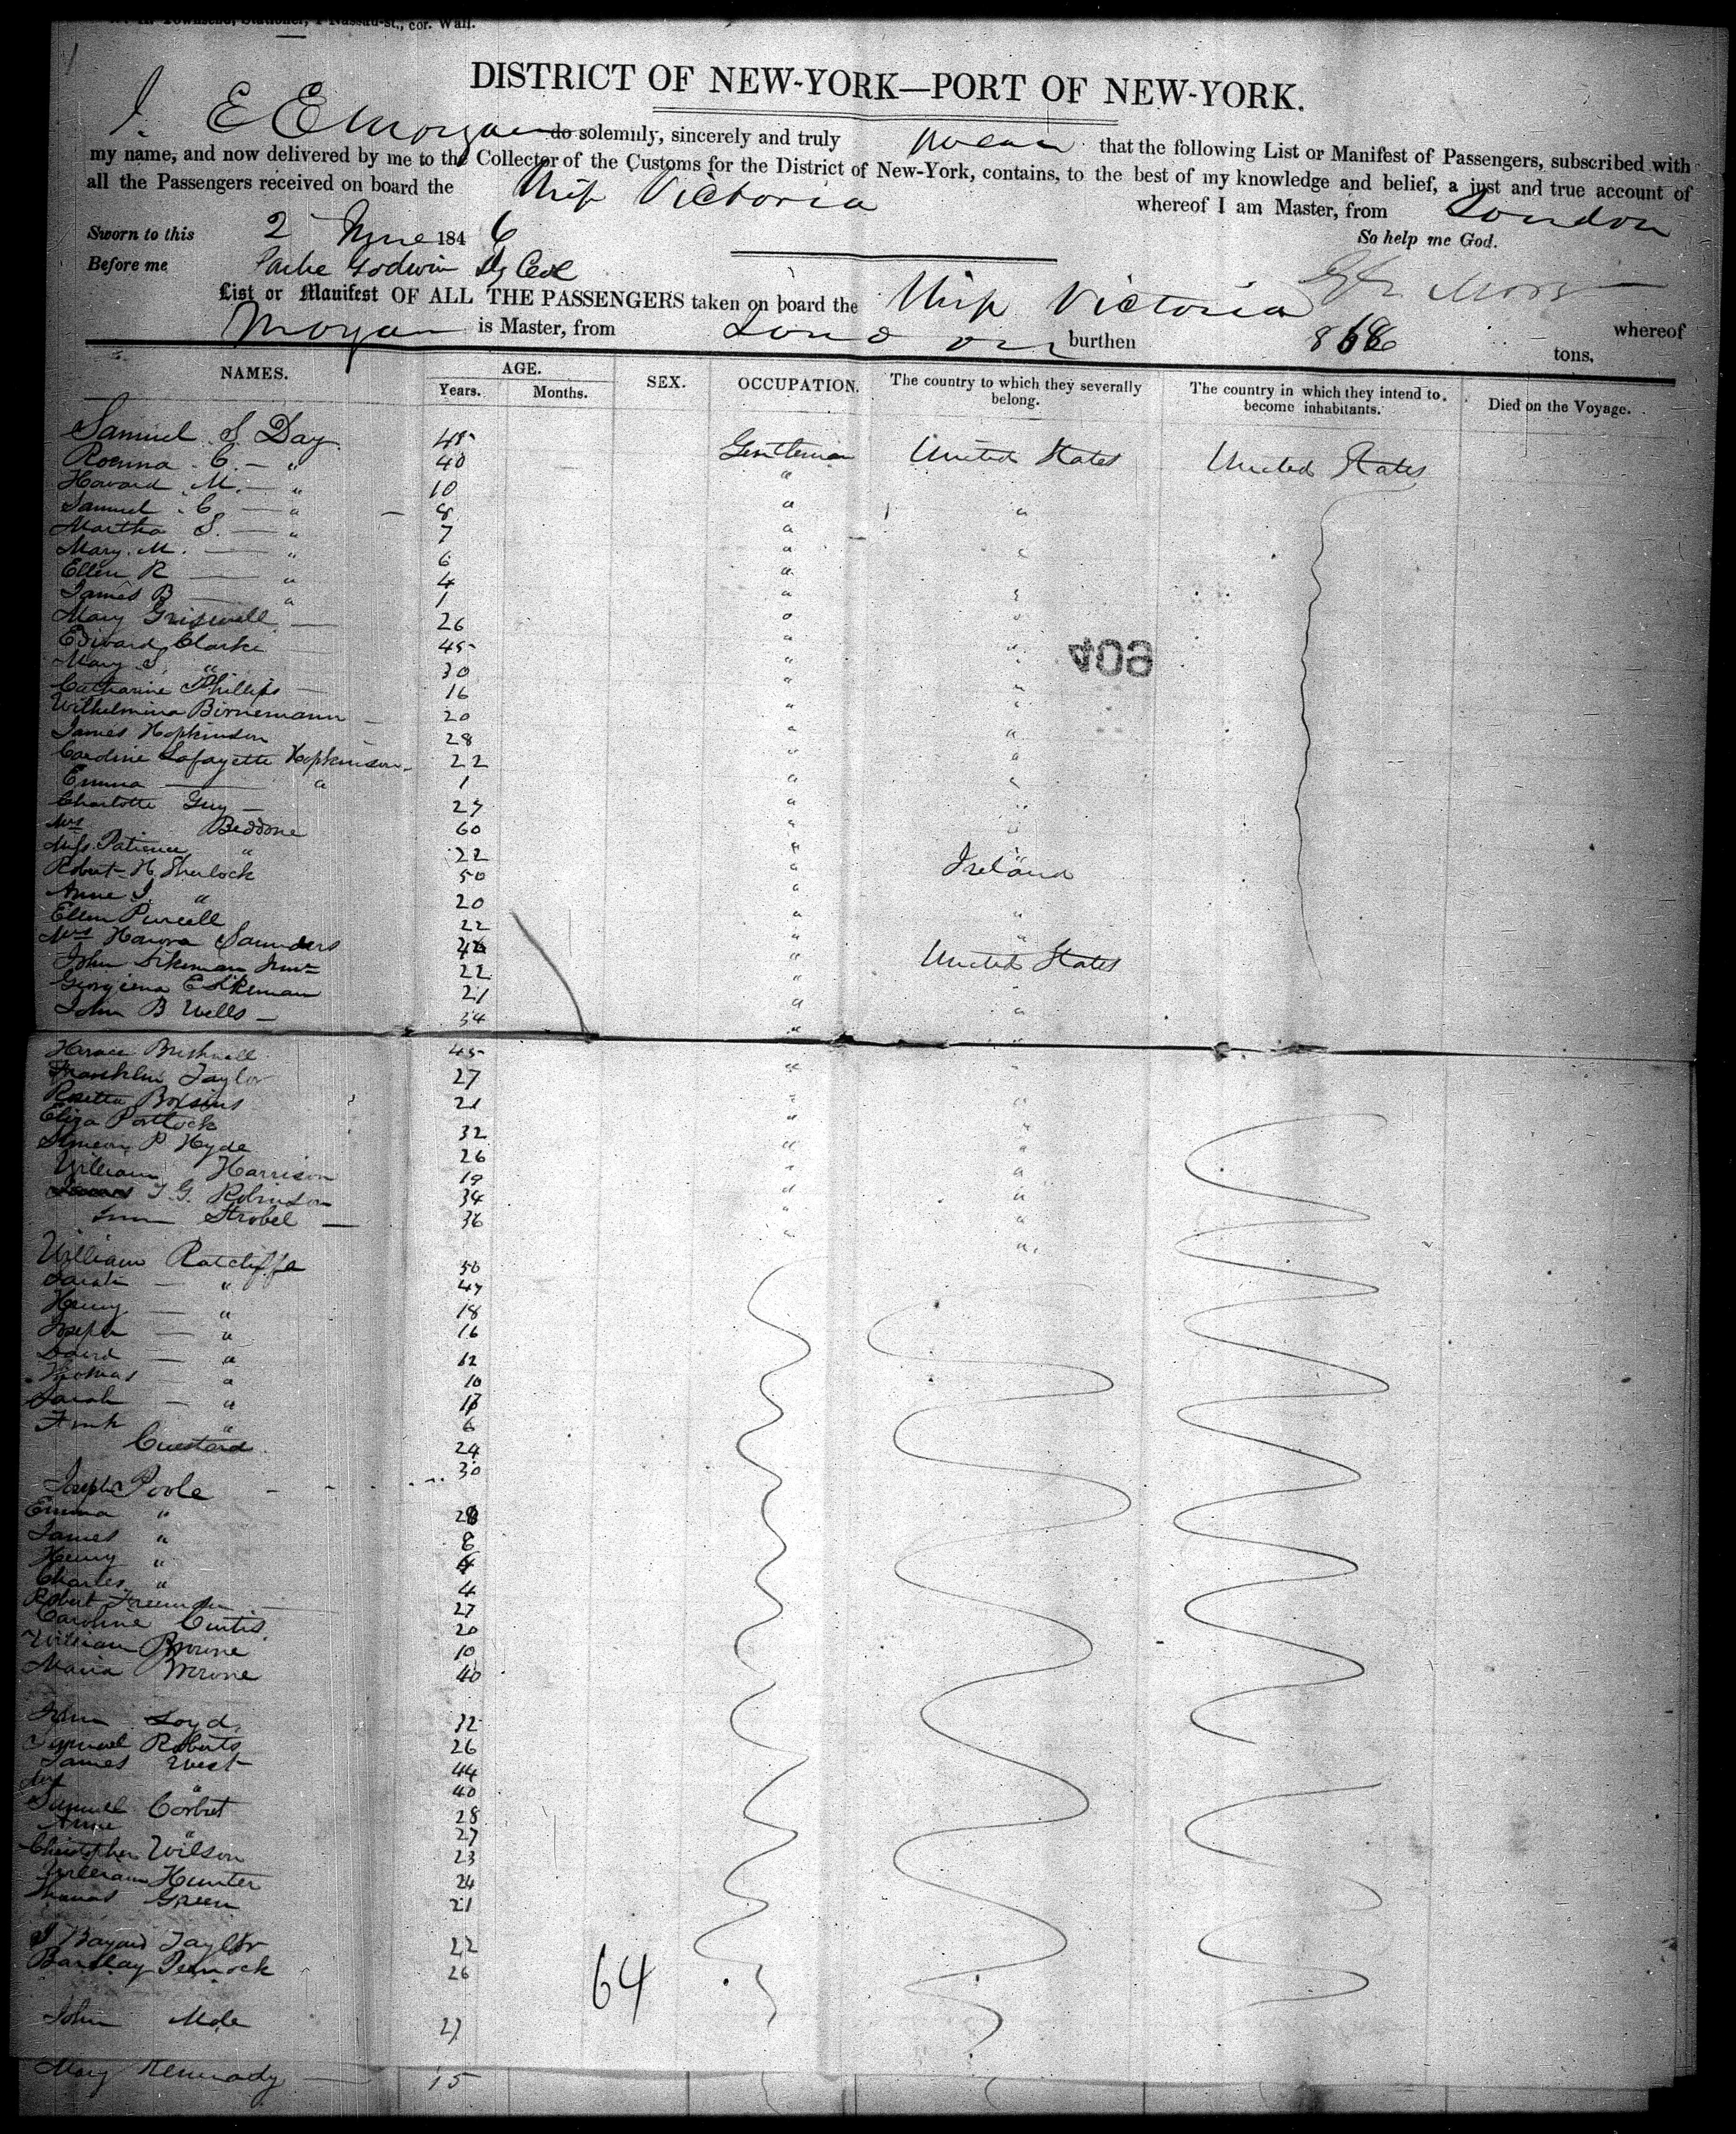 Townsend, Stationer, 1 Nassau-st., cor. Wall.
DISTRICT OF NEW-YORK—PORT OF NEW-YORK.
I, E E Morgan do solemnly, sincerely and truly swear that the following List or Manifest of Passengers, subscribed with
my name, and now delivered by me to the Collector of the Customs for the District of New-York, contains, to the best of my knowledge and belief, a just and true account of
all the Passengers received on board the Ship Victoria whereof I am Master, from London
Sworn to this 2 June 1846 So help me God.
Before me Parke Godwin Dy Col
List or Manifest OF ALL THE PASSENGERS taken on board the Ship Victoria whereof
Morgan is Master, from London burthen 868 tons.
NAMES. AGE. SEX. OCCUPATION. The country to which they severally belong. The country in which they intend to become inhabitants. Died on the Voyage.
Years. Months.
Samuel S. Day 45 Gentleman United States United States
C. — " 40 "
Howard M. — " 10 "
Samuel C. — " 8 " "
Martha S. — " 7 "
Mary M. — " 6 "
Ellen R — " 4 "
James B — " 1 "
Mary 26
Edward Clarke 45 "
Mary S. " 30 "
Catharine Phillips — 16 "
Wilhelmina Birnemann — 20 "
James Hopkinson 28 "
Caroline Lafayette Hopkinson 22 "
Emma — " 1 "
Charlotte Guy — 27 "
Mrs Beddome 60 "
Miss Patience " 22 "
Robert H. Sherlock 50 " Ireland
Anne J. " 20 "
Ellen Purcell 22 " "
Mrs Honora Saunders " "
John Sikeman Junr 22 " United States
Georgiena E Sikeman 21 " "
John B Wells — 34 " "
409
Horace Bushnell 45
Franklin Taylor 27 "
21
Eliza Portlock 32 "
Simeon P. Hyde 26 "
William Harrison 19 " "
T. G. Robinson 34 " "
Strobel — 36 " "
William Ratcliffe 50
Sarah — " 47
Henry — " 18
Joseph — " 16
David — " 12
Thomas — " 10
Sarah — "
Frank " 6
Custard 24
30
Joseph Poole
Emma " 28
James " 8
Henry "
Charles " 4
Robert Freeman 27
Caroline Curtis 20
William Browne 10
Maria Browne 40
John Loyd 32
Roberts 26
James West 44
Mrs " 40
Samuel Corbet 28
Anne " 27
Christopher Wilson 23
William Hunter 24
Thomas Green 21
J Bayard Taylor 22
Barclay Pennock 26
64
John Mole 27
Mary Kennady — 15